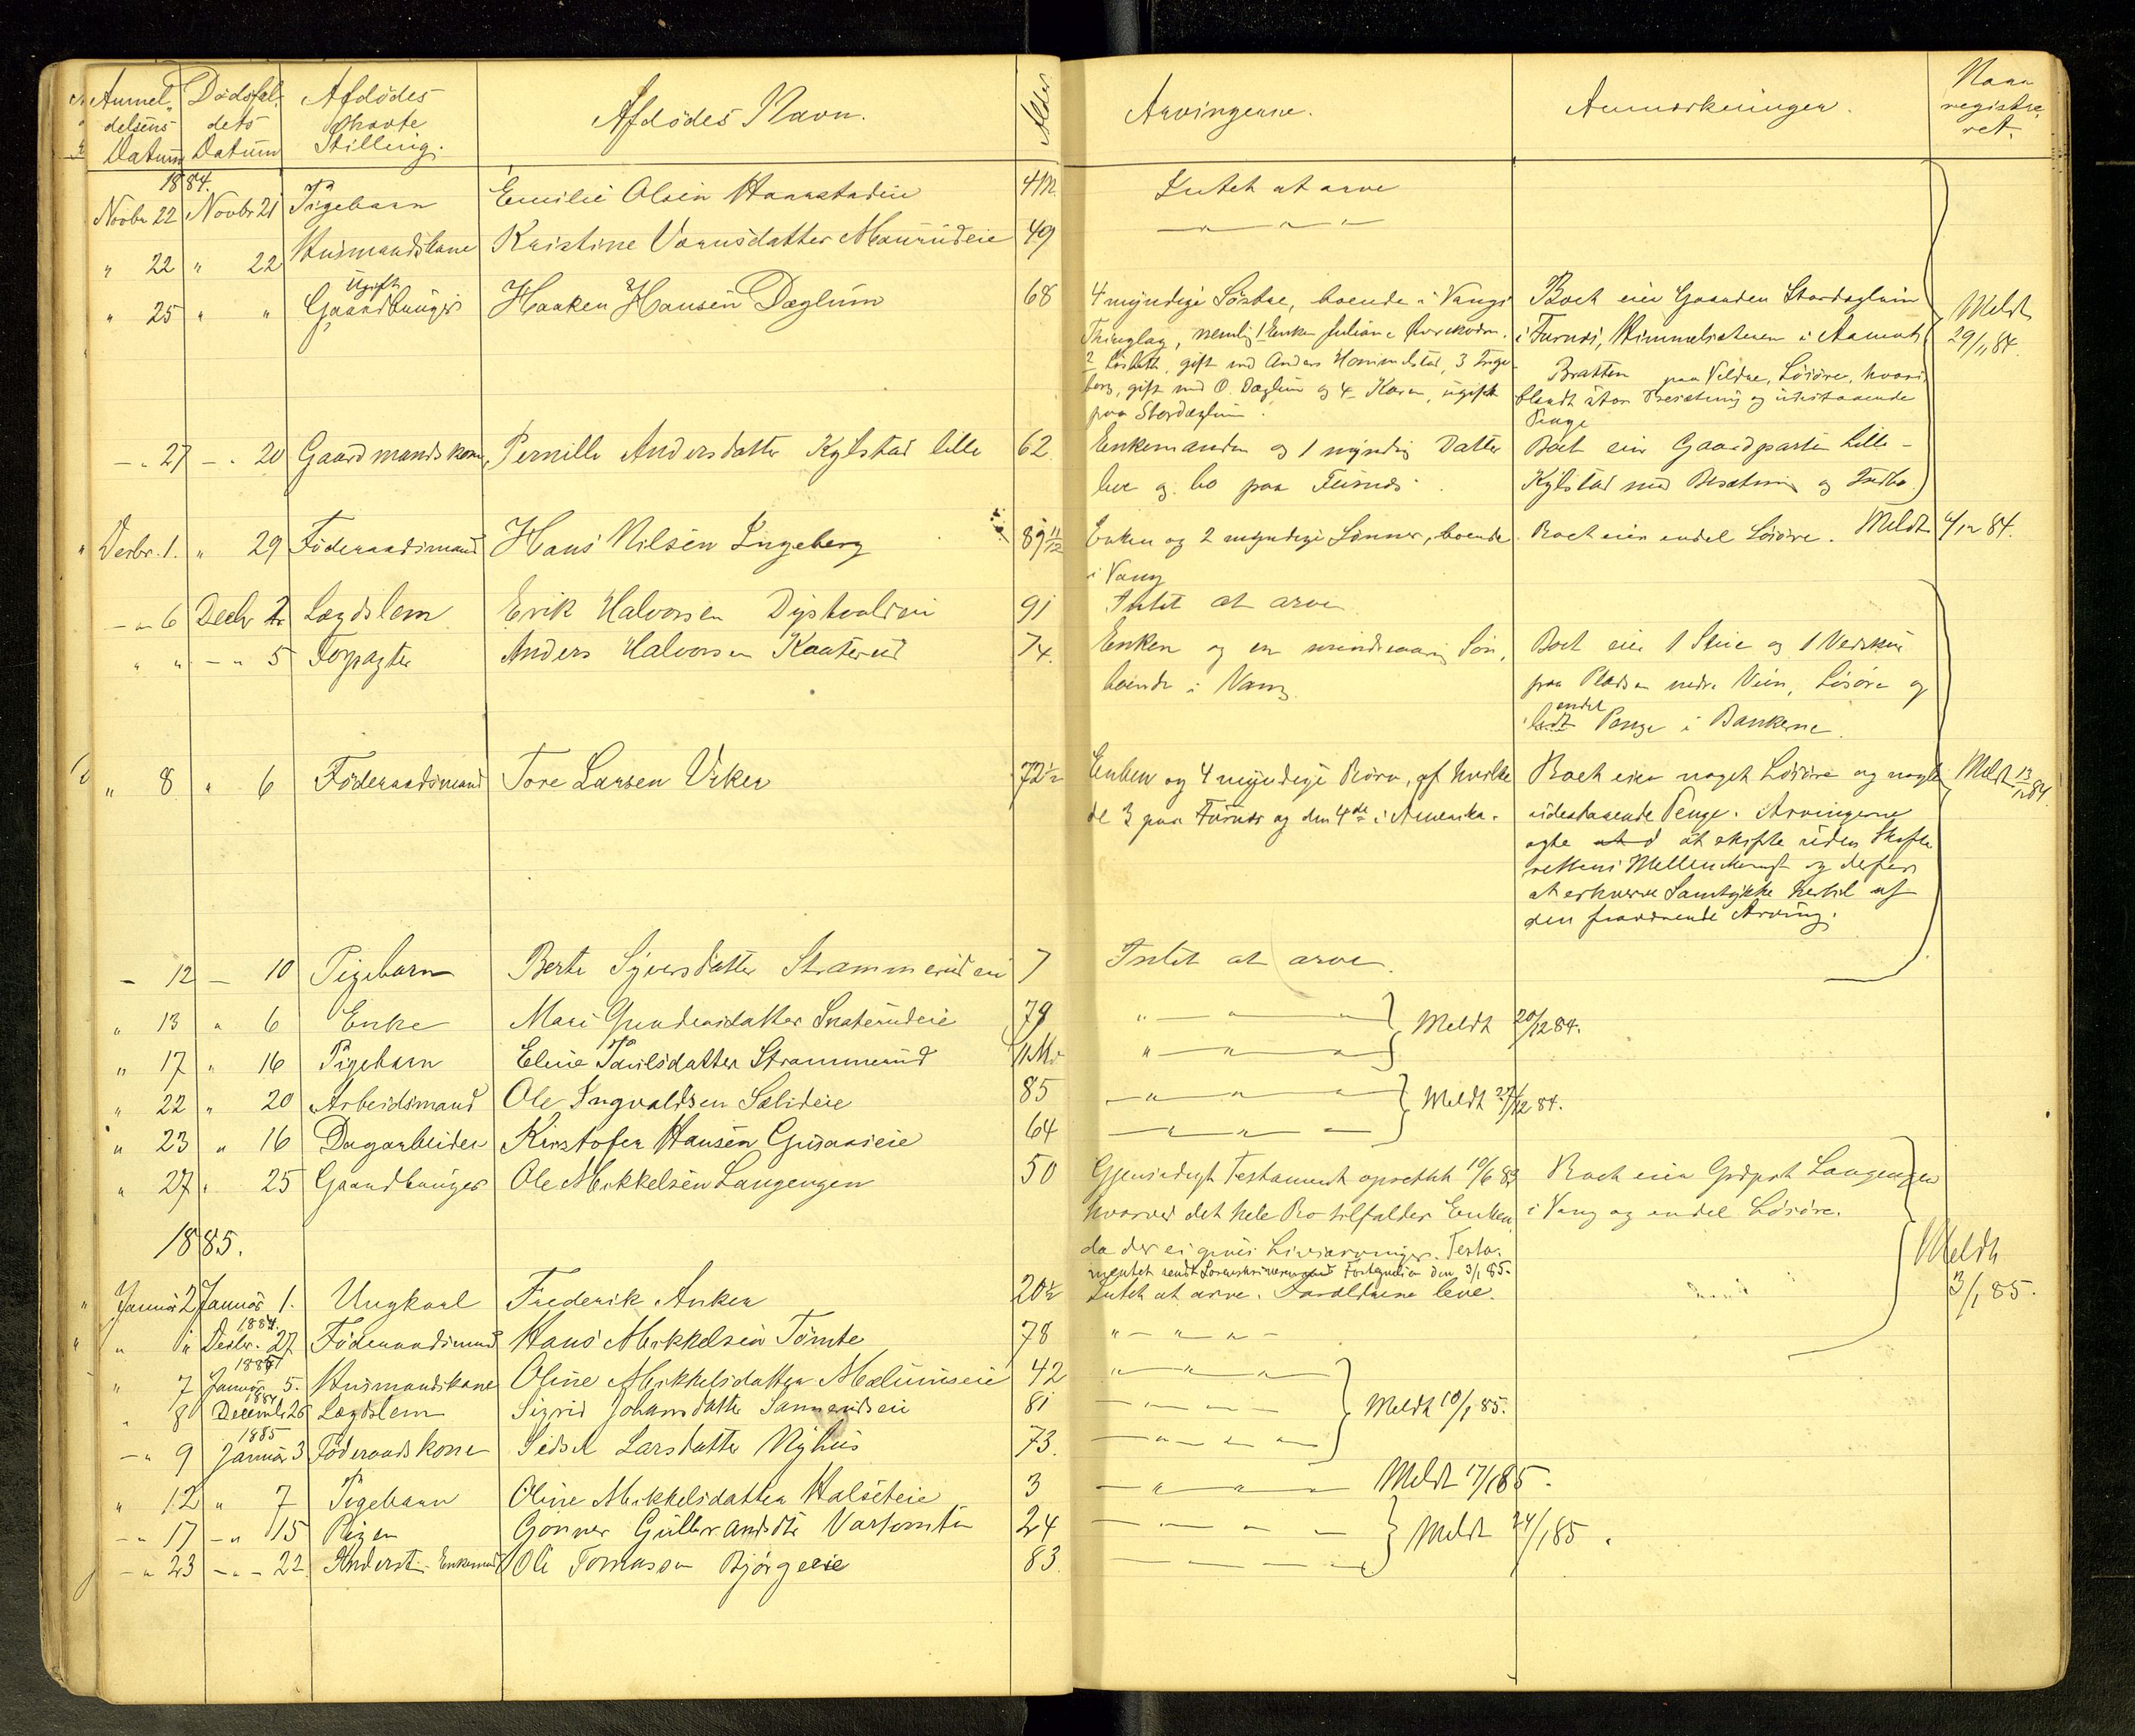 Anmel- Dödsfal- Afdödes Afdödes Navn. Alder Arvingerne. Anmærkninger. Naar
delsens dets Stilling. registre-
Datum Datum ret.
1884.
Novbr 22 Novbr 21 Pigebarn Emilie Olsen 4 M. Intet at arve
" 22 " 22 Husmandskone Kristine 49 — " — " — "
Ugift
" 25 " " Gaardbruger Haaken Hansen Dæglum 68 4 myndige Söstre, boende i Vangs Boet eier Gaarden Stordæglum Meldt
Thinglag, nemlig 1 Enken Juliane i Furnæs, i Aamodt 29/11 84.
2 Lisbeth, gift med Anders Hommelstad, 3 Inge- Bratten paa Veldre, Lösöre, hvori
borg, gift med O. Dæglum og 4 Karen, ugift blandt Besætning og udestaaende
paa Stordæglum. Penge
— " 27 — " 20 Gaardmandskone, Pernille Andersdatter Kylstad lille 62 Enkemanden og 1 myndig Datter Boet eier Gaardparten Lille-
paa Furnæs. Kylstad med Besætning og Indbo.
" Decbr. 1. " 29 Föderaadsmand Hans Nilsen Ingeberg 89 11/12 Enken og 2 myndige Sönner, boende Boet eier endel Lösöre. Meldt 6/12 84.
i Vang
— " 6 Decbr 2 Lægdslem Erik Halvorsen 91 Intet at arve
" " — " 5 Forpagter Anders Halvorsen Kaaterud 74. Enken og en mindreaarig Sön, Boet eier 1 Stue og 1 Vedskur
boende i Vang. paa Pladsen nedre Vien, Lösöre og
endel
Penge i Bankerne.
" 8 " 6 Föderaadsmand Tore Larsen 72 1/2 Enken og 4 myndige Börn, af hvilke Boet eier noget Lösöre og nogle Meldt 13/12 84.
de 3 paa Furnæs og den 4de i Amerika. udestaaende Penge. Arvingerne
agte at skifte uden Skifte-
rettens Mellemkomst og derfor
at erhverve Samtykke hertil af
den fraværende Arving.
— 12 — 10 Pigebarn Berte Syversdatter Strammerudeie 7 Intet at arve.
" 13 " 6 Enke Mari Gundersdatter Snaterudeie 79 " — " — " Meldt 20/12 84.
" 17 " 16 Pigebarn Eline Paulsdatter Strammerud 11 M. " — " — "
" 22 " 20 Arbeidsmand Ole Ingvaldsen Sælideie 85 — " — " — " Meldt 27/12 84.
" 23 " 16 Dagarbeider Kristofer Hansen 64 — " — " —
" 27 " 25 Gaardbruger Ole Mikkelsen Langengen 50 Gjensidigt Testament oprettet 10/6 83 Boet eier Gdprt Langengen
hvorved det hele Bo tilfalder Enken i Vang og endel Lösöre.
1885. da der ei gives Livsarvinger. Testa-
mentet sendt Sorenskriveren med Fortegnelsen den 3/1 85. Meldt
" Januar 2 Januar 1. Ungkarl Frederik Anker 20 1/2 Intet at arve. Forældrene leve. 3/1 85.
1884.
" " " Decbr. 27 Föderaadsmand Hans Mikkelsen Tömte 78 " — " — " —
1885
" 7 Januar 5. Husmandskone Oline Mikkelsdatter Mælumseie 42 " — " — "
1884
" 8 Decembr 26 Lægdslem Sigrid Johansdatter 81 — " — " — Meldt 10/1 85.
1885
— " 9 Januar 3 Föderaadskone Sidsel Larsdatter Nyhus 73. — " — " — "
" 12 " 7 Pigebarn Oline Mikkelsdatter Halseteie 3 — " — " — Meldt 17/1 85.
— " 17 — " 15 Pigen Gönner 24 — " — " — Meldt 24/1 85.
— " 23 — " — 22. Enkemand Ole Tomassen Bjørgeeie 83. — — — —